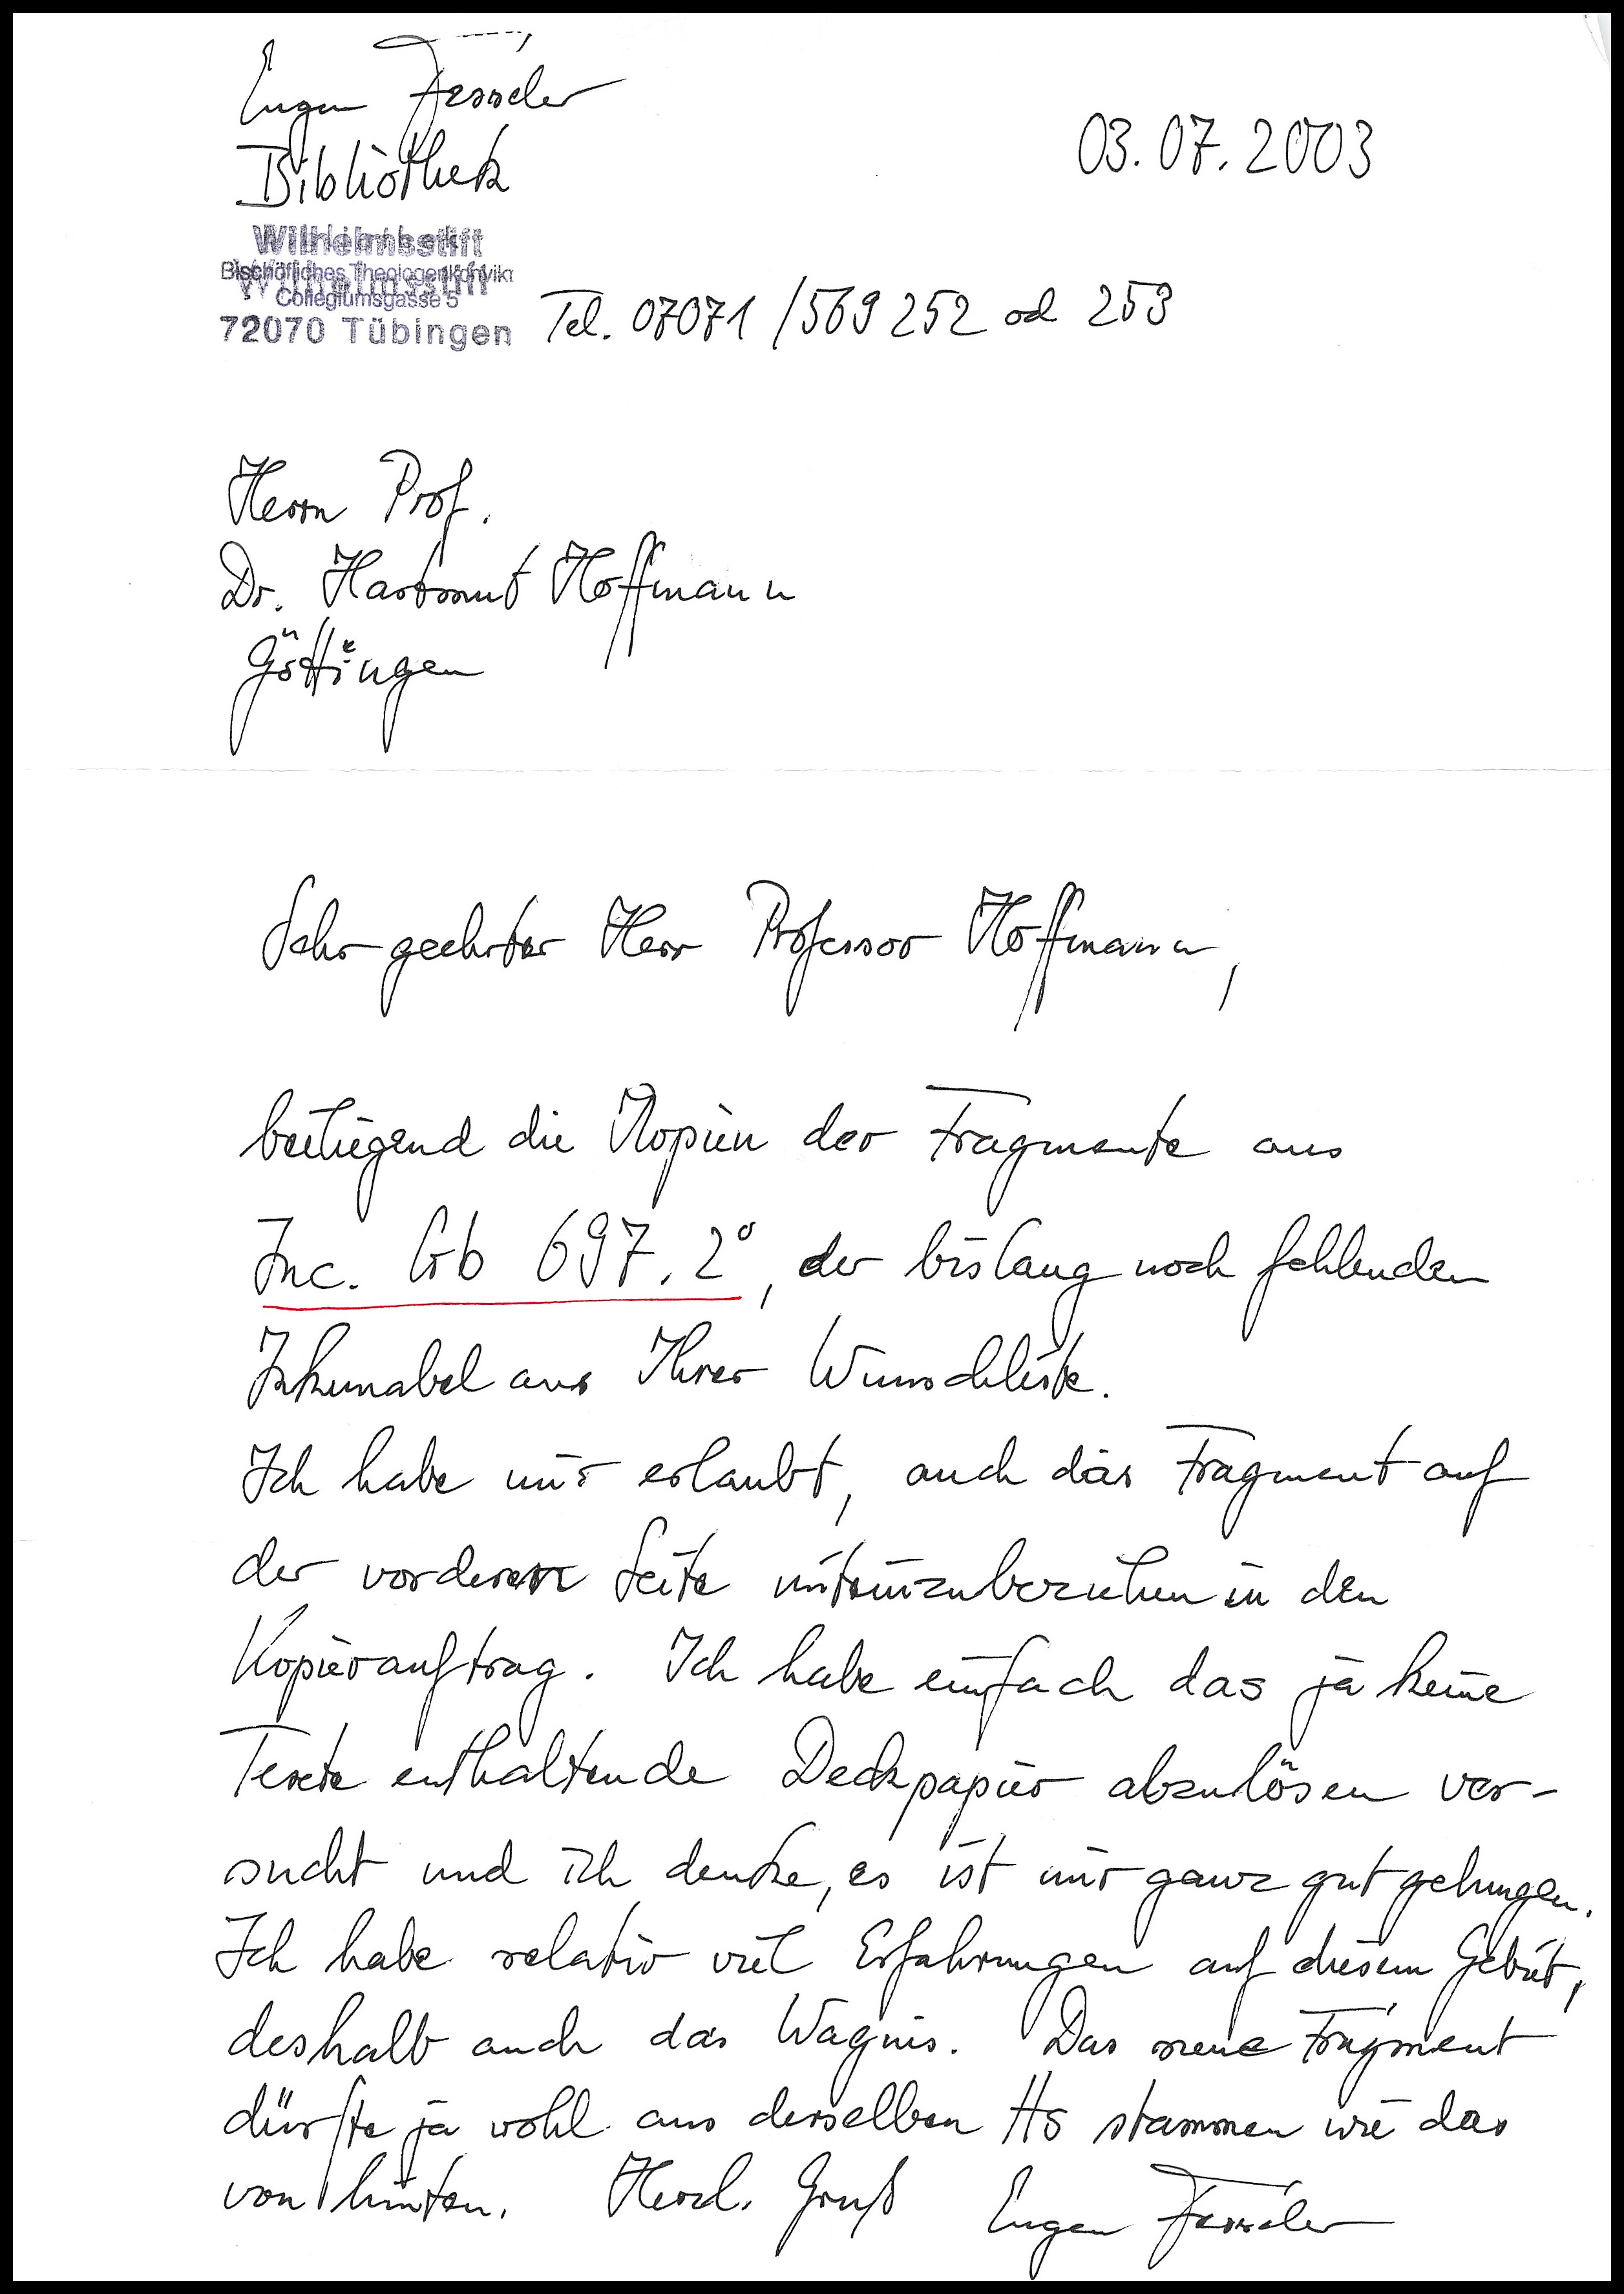 Eugen Fesseler
Bibliothek
03.07.2003
Wilhelmsstift
Bischöfliches Theologenkonvikt
Collegiumsgasse 5
72070 Tübingen
Tel. 07071/569 252 od 253
Herrn Prof.
Dr. Hartmut Hoffmann
Göttingen
Sehr geehrter Herr Professor Hoffmann,
beiliegend die Kopien der Fragmente aus
Inc. Gb 697.2°, der bislang noch fehlenden
Inkunabel aus Ihrer Wunschliste.
Ich habe mir erlaubt, auch das Fragment auf
der vorderen Seite miteinzubeziehen in den
Kopierauftrag. Ich habe einfach das ja keine
Texte enthaltende Deckpapier abzulösen ver-
sucht und ich denke, es ist mir ganz gut gelungen.
Ich habe relativ viel Erfahrungen auf diesem Gebiet,
deshalb auch das Wagnis. Das neue Fragment
dürfte ja wohl aus derselben Hs stammen wie das
von hinten. Herzl. Gruß Eugen Fesseler